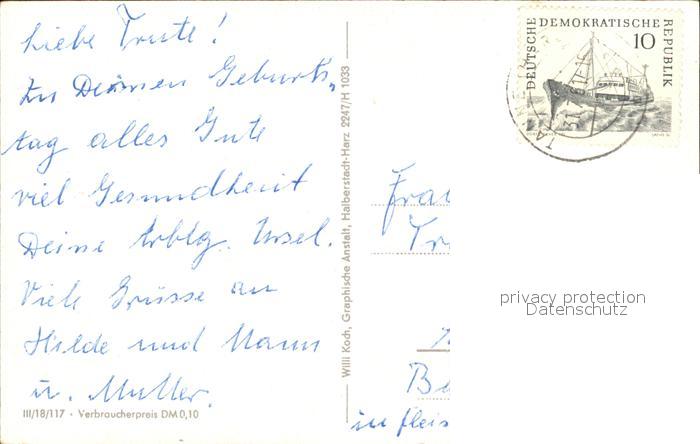 Liebe Trute!
Zu Deinen Geburts,
tag alles Gute
viel Gesundheit
Deine Ursel.
Viele Grüsse an
Hilde und Mann
u. Mutter.
III/18/117 · Verbraucherpreis DM 0,10
Willi Koch, Graphische Anstalt, Halberstadt-Harz 2247/H 1033
DEUTSCHE DEMOKRATISCHE REPUBLIK
10
Frau
privacy protection
Datenschutz
in